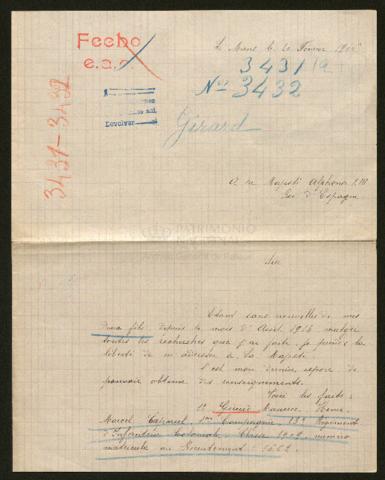 Fecho
e.a.c.
Le Mans le 20 Février
3431
Nos 3432
Devolver
Gérard
3431-3432
A sa Majesté Alphonse XIII
Roi d'Espagne
PATRIMONIO
NACIONAL
Sire
Etant sans nouvelles de mes
deux fils depuis le mois d'Avril malgré
toutes les recherches que j'ai faites, je prends la
liberté de m'adresser à Sa Majesté
C'est mon dernier espoir de
pouvoir obtenir des renseignements.
Voici les faits:
1° Maurice, René,
Marcel, 1ère Compagnie Régiment
d'Infanterie Coloniale, Classe 1902, numéro
matricule au Recrutement 1622.